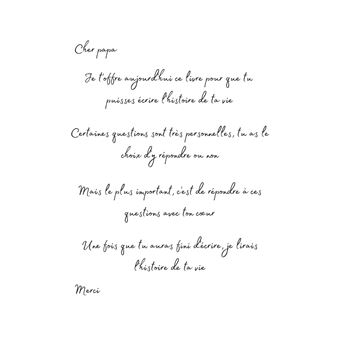 Cher papa
Je t'offre aujourd'hui ce livre pour que tu
puisses écrire l'histoire de ta vie
Certaines questions sont très personnelles, tu as le
choix d'y répondre ou non
Mais le plus important, c'est de répondre à ces
questions avec ton cœur
Une fois que tu auras fini d'écrire, je lirais
l'histoire de ta vie
Merci